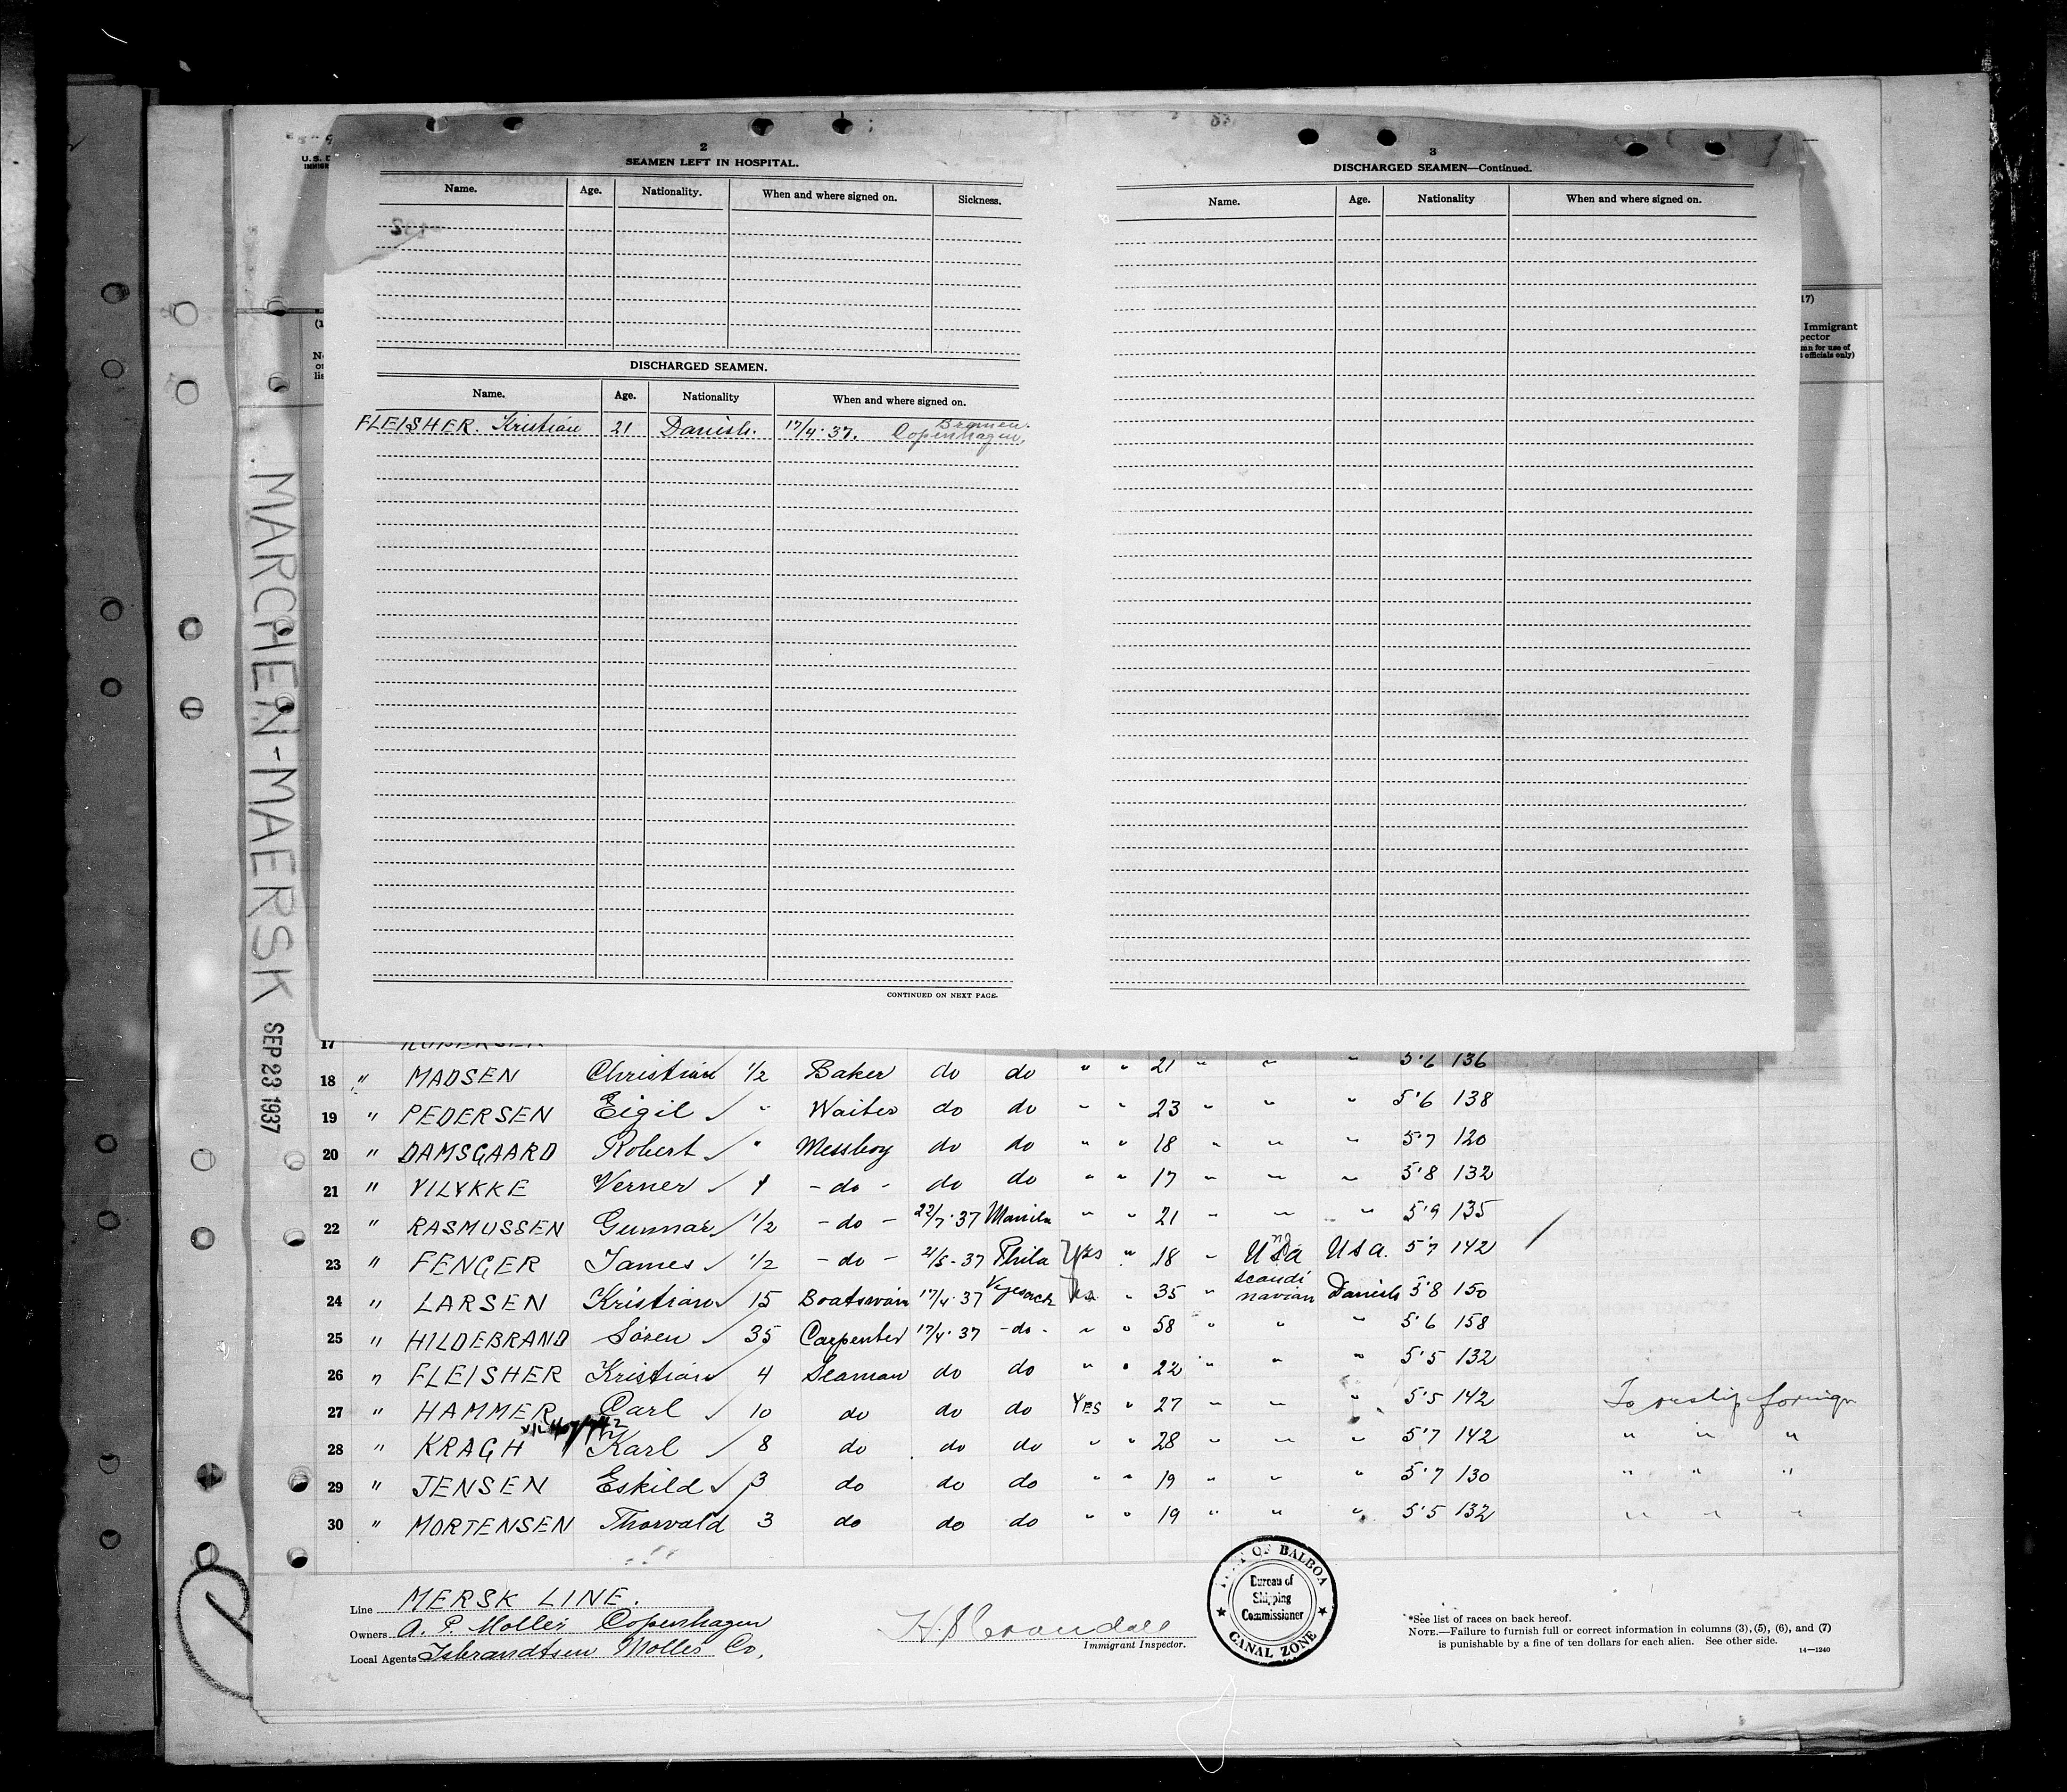 2
SEAMEN LEFT IN HOSPITAL.
Name. Age. Nationality. When and where signed on. Sickness.
DISCHARGED SEAMEN.
Name. Age. Nationality When and where signed on.
FLEISHER. Kristian 21 Danish. 17/4·37. Bremen. Copenhagen.
CONTINUED ON NEXT PAGE.
3
DISCHARGED SEAMEN—Continued.
Name. Age. Nationality When and where signed on.
17)
Immigrant
pector
mn for use of
officials only)
MARCHEN-MAERSK SEP 23 1937
17
18 " MADSEN Christian 1/2 Baker do do " " 21 " " " 5'6 136
19 " PEDERSEN Eigil " Waiter do do " " 23 " " " 5'6 138
20 " DAMSGAARD Robert " Messboy do do " " 18 " " " 5'7 120
21 " VILYKKE Verner 1 - do - do do " " 17 " " " 5'8 132
22 " RASMUSSEN Gunnar 1/2 - do - 22/7·37 Manila " " 21 " " " 5'9 135
23 " FENGER James 1/2 - do - 21/5-37 Phila Yes " 18 " USA USA. 5'7 142
24 " LARSEN Kristian 15 Boatswain 17/4·37 Vegesack no " 35 " Scandinavian Danish 5'8 150
25 " HILDEBRAND Søren 35 Carpenter 17/4·37 -do- " " 58 " " " 5'6 158
26 " FLEISHER Kristian 4 Seaman do do " " 22 " " " 5'5 132
27 " HAMMER Carl 10 do do do YES " 27 " " " 5'5 142 To reship foreign
28 " KRAGH Karl 8 do do do " " 28 " " " 5'7 142 " " "
29 " JENSEN Eskild 3 do do do " " 19 " " 5'7 130 " " "
30 " MORTENSEN Thorvald 3 do do do " " 19 " " " 5'5 132 " " "
Line MERSK LINE.
Owners A. P. Moller Copenhagen
Local Agents Isbrandtsen Moller Co.
Immigrant Inspector.
OF BALBOA
Bureau of
Shipping
Commissioner
CANAL ZONE
*See list of races on back hereof.
NOTE.—Failure to furnish full or correct information in columns (3), (5), (6), and (7)
is punishable by a fine of ten dollars for each alien. See other side.
14—1240